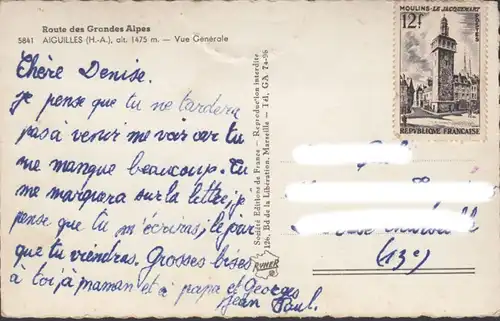 Route des Grandes Alpes
5841 AIGUILLES (H.-A.), alt. 1475 m. — Vue Générale
Chère Denise.
je pense que tu ne tardera
pas à venir me voir car tu
me manque beaucoup. Tu
me margiora sur la lettre, je
pense que tu m'écrira, le jour
que tu viendras. Grosses bises
à toi, à maman et à papa et Georges
Jean Paul.
Société Editions de France — Reproduction interdite
126, Bd de la Libération, Marseille — Tél. GA 74-96
RYNER
MOULINS-LE JACQUEMART
12f
POSTES
REPVBLIQVE FRANCAISE
(13e)